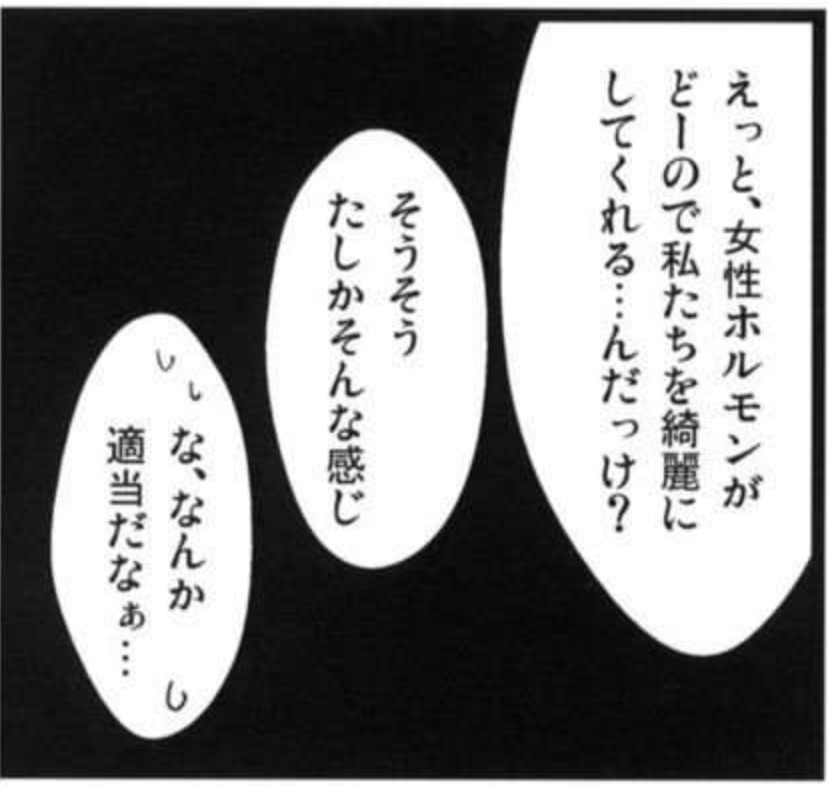 えっと、女性ホルモンが
どーので私たちを綺麗に
してくれる…んだっけ?
そうそう
たしかそんな感じ
な、なんか
適当だなぁ…